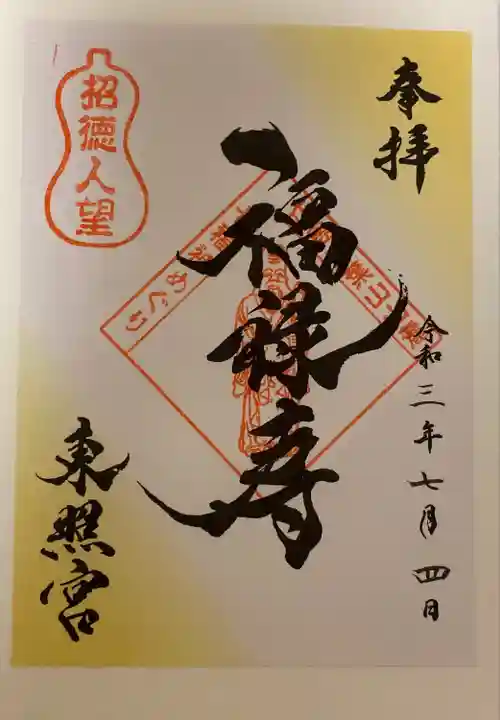 奉拝
令和三年七月四日
福禄寿
招徳人望
めぐり
東照宮